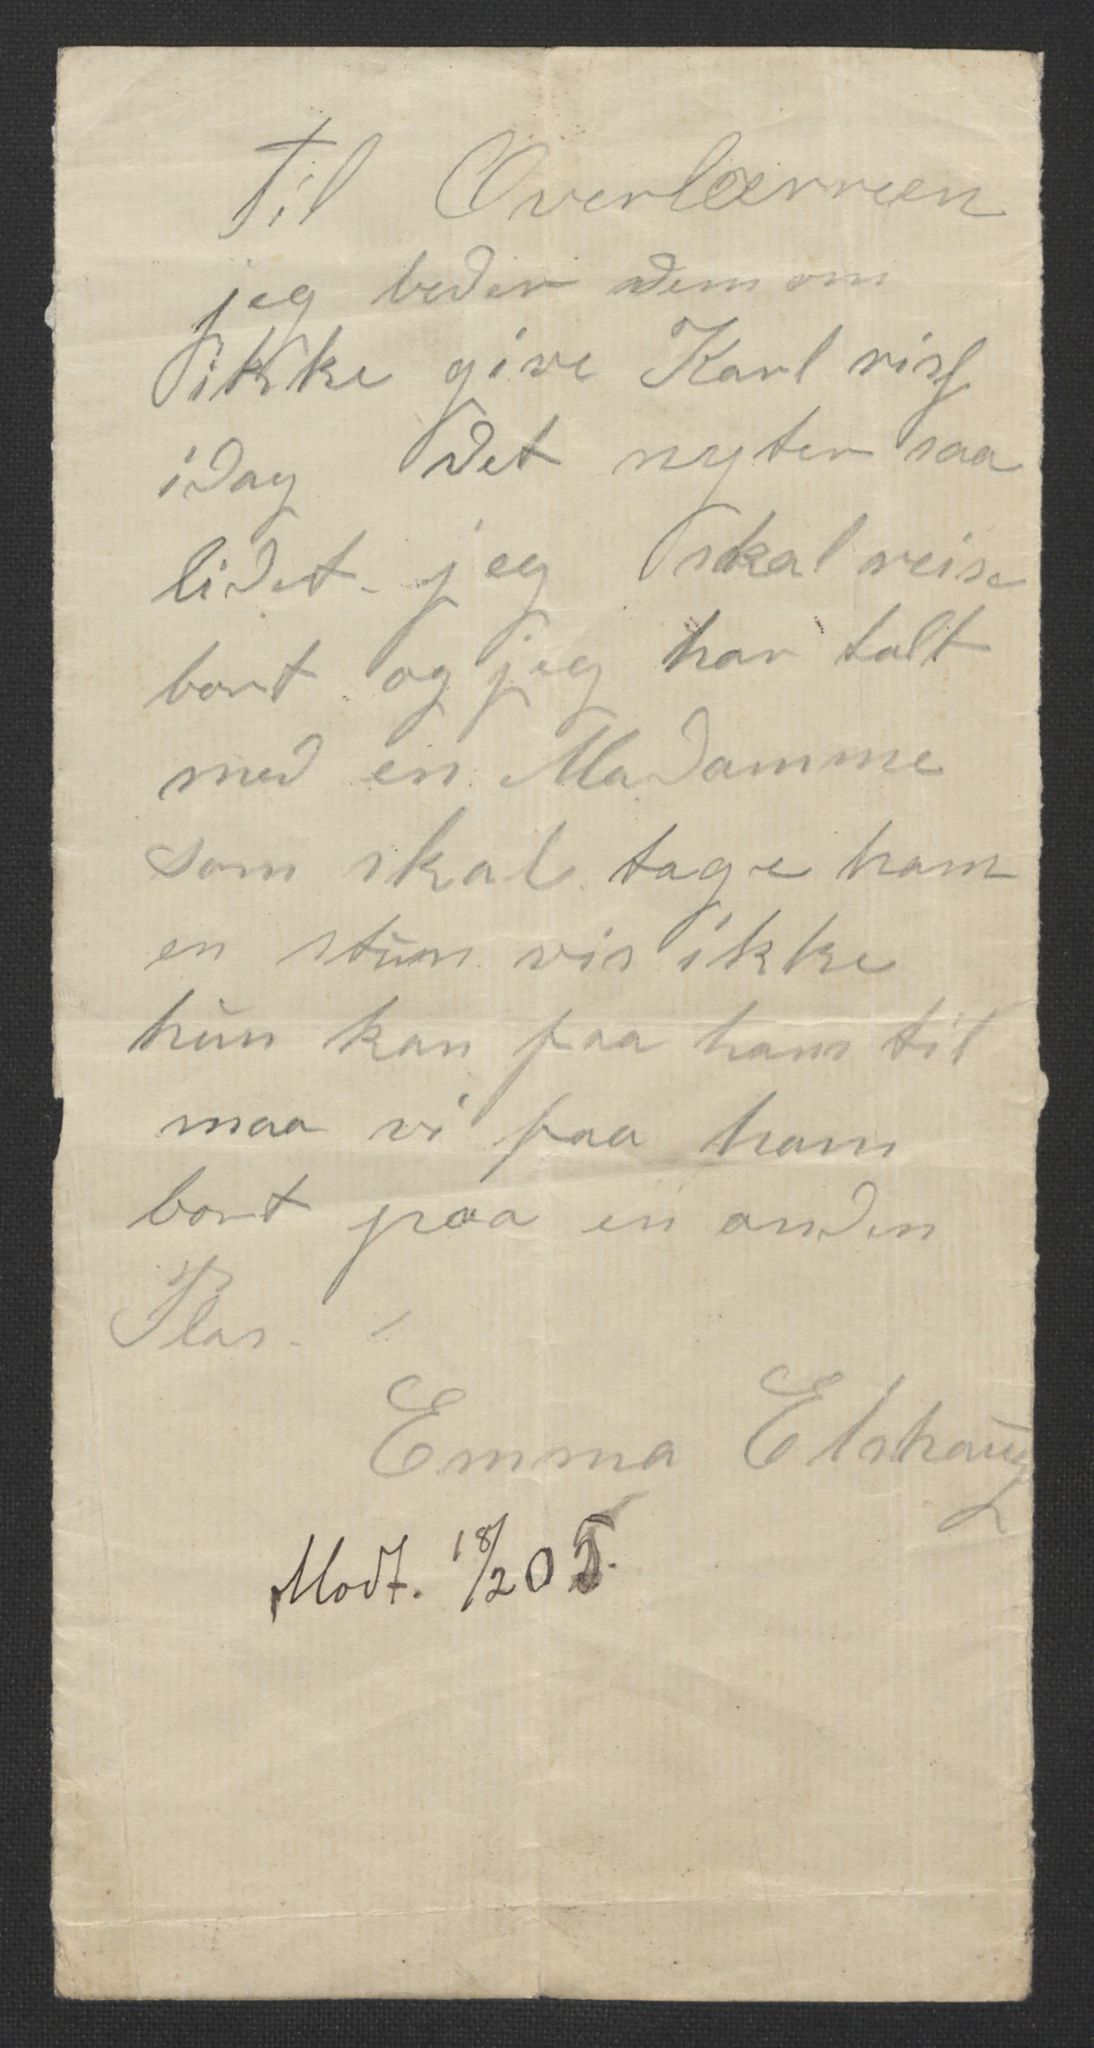 Til Overlærreen
jeg beder dem om
ikke give Karl ris
idag det nyter saa
lidet. jeg skal reise
bort og jeg har talt
med en Madamme
som skal tage ham
en stun vis ikke
hun kan faa ham til
maa vi faa ham
bort paa en anden
Plas.
Emma Elshaug
Modt. 18/2 05.